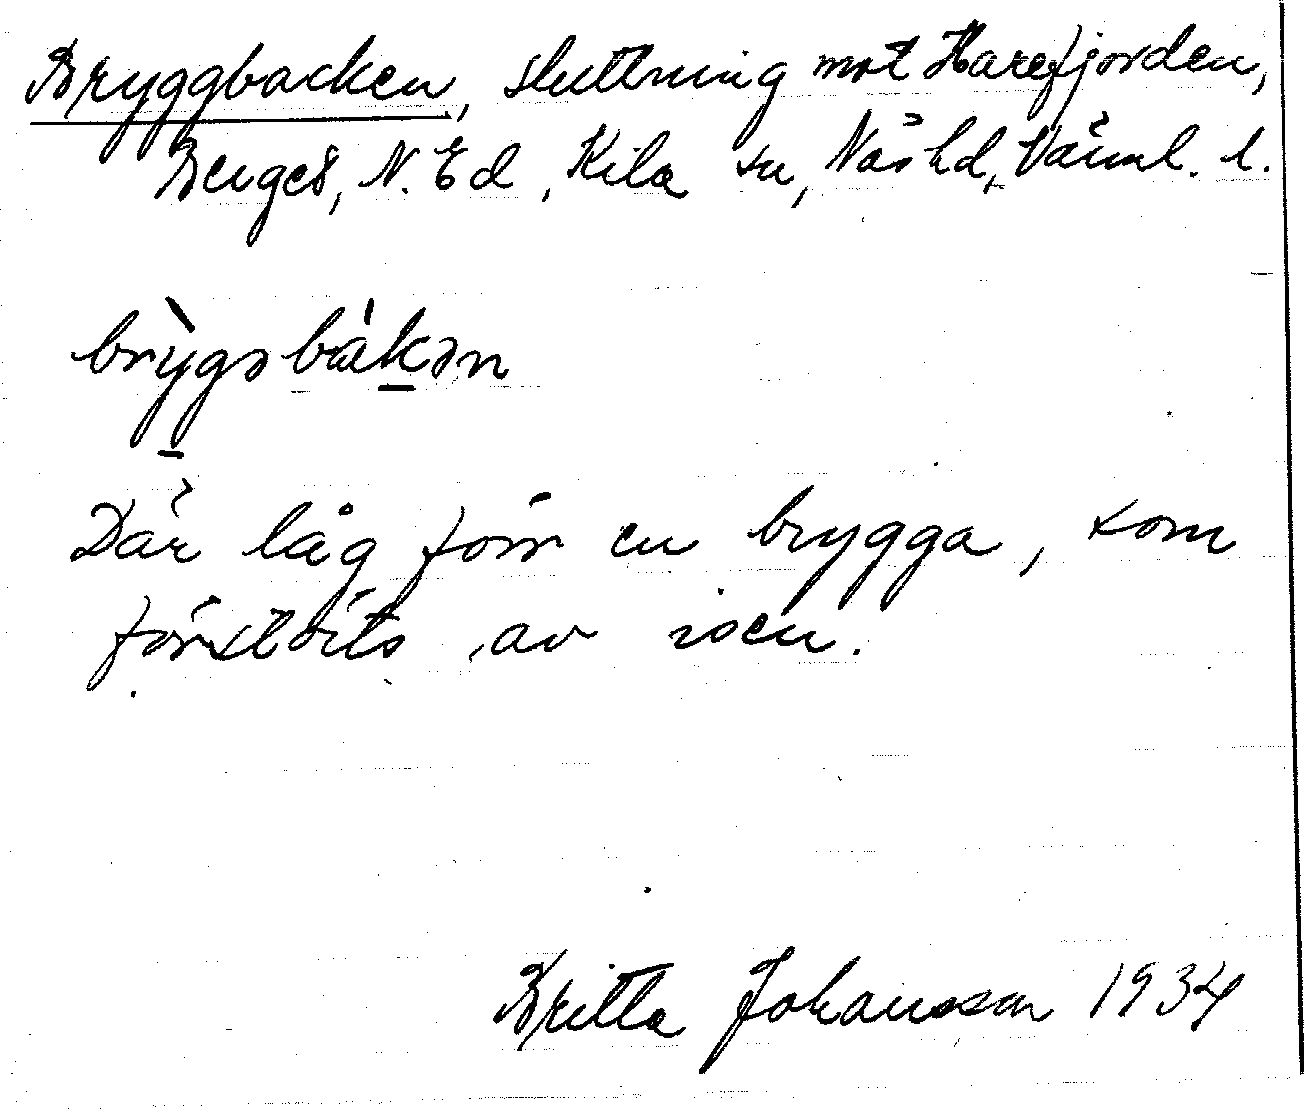 Bryggbacken, sluttning mot Harefjorden,
Benges, N. Ed, Kila sn, Näs hd, Värml. l.
brỳgəbákən
Där låg förr en brygga, som
förstörts av isen.
Britta Johansson 1934